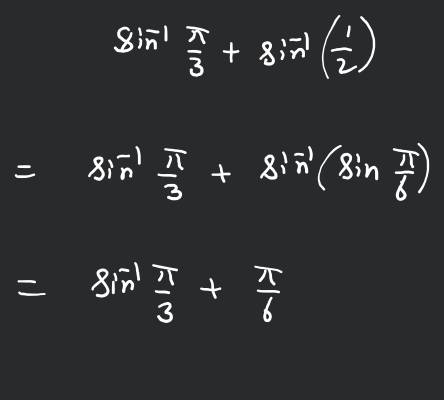 sin⁻¹ π/3 + sin⁻¹(1/2)
= sin⁻¹ π/3 + sin⁻¹(sin π/6)
= sin⁻¹ π/3 + π/6